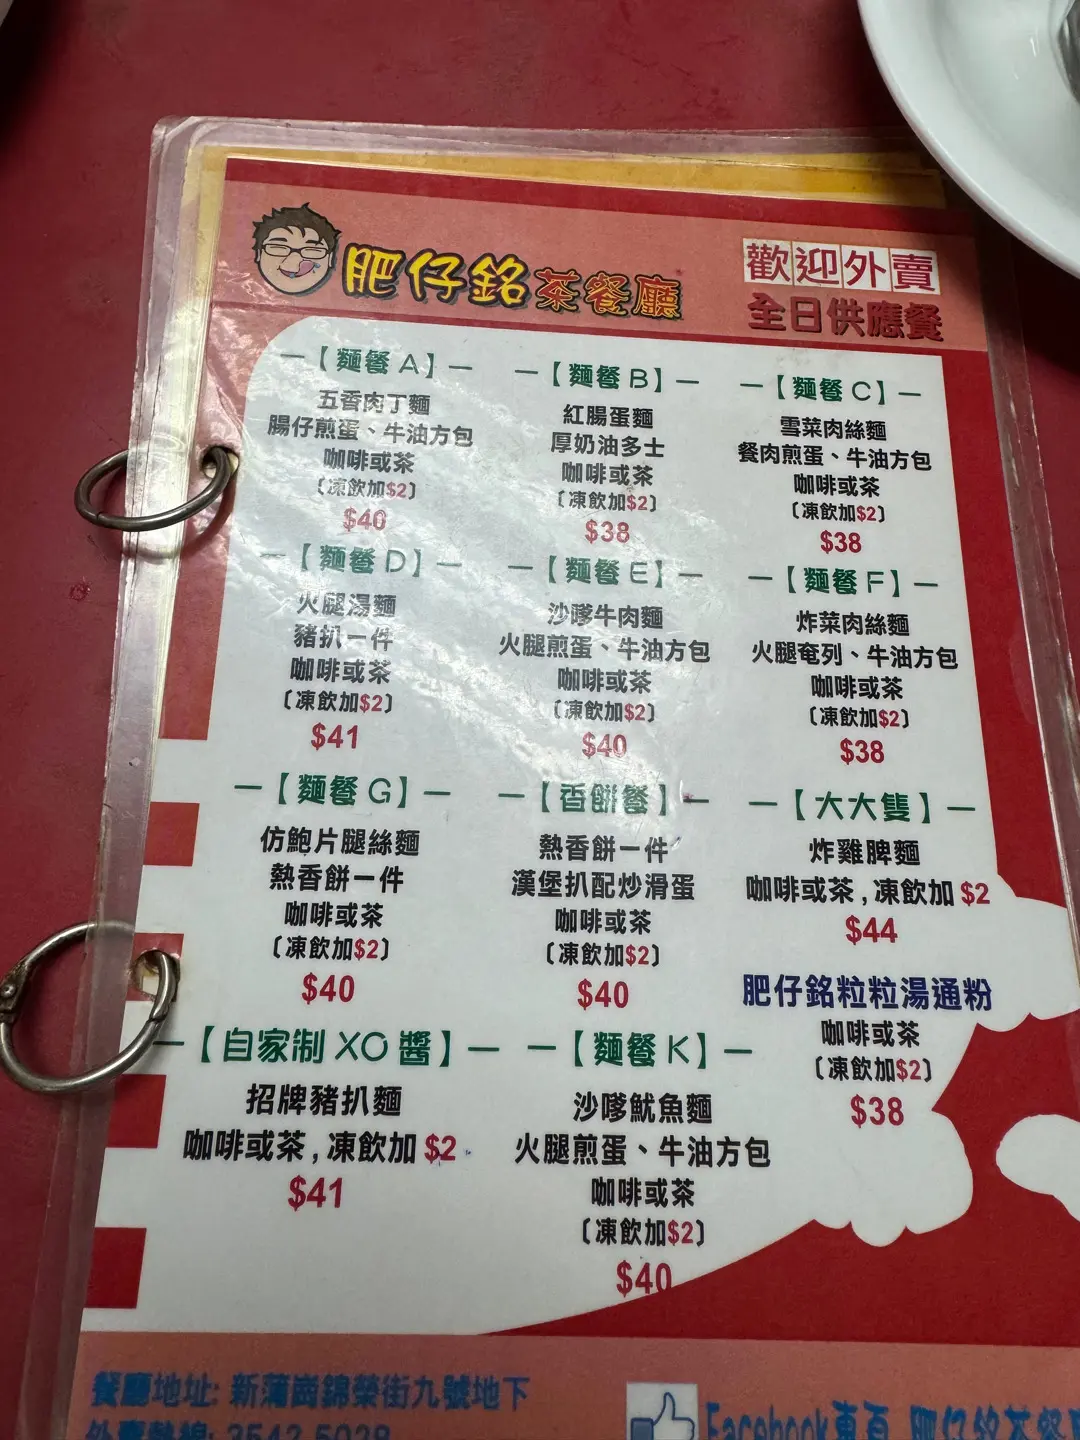 肥仔銘茶餐廳
歡迎外賣
全日供應餐
【麵餐A】
五香肉丁麵
腸仔煎蛋、牛油方包
咖啡或茶
(凍飲加$2)
$40
【麵餐B】
紅腸蛋麵
厚奶油多士
咖啡或茶
(凍飲加$2)
$38
【麵餐C】
雪菜肉絲麵
餐肉煎蛋、牛油方包
咖啡或茶
(凍飲加$2)
$38
【麵餐D】
火腿湯麵
豬扒一件
咖啡或茶
(凍飲加$2)
$41
【麵餐E】
沙嗲牛肉麵
火腿煎蛋、牛油方包
咖啡或茶
(凍飲加$2)
$40
【麵餐F】
炸菜肉絲麵
火腿奄列、牛油方包
咖啡或茶
(凍飲加$2)
$38
【麵餐G】
仿鮑片腿絲麵
熱香餅一件
咖啡或茶
(凍飲加$2)
$40
【香餅餐】
熱香餅一件
漢堡扒配炒滑蛋
咖啡或茶
(凍飲加$2)
$40
【大大隻】
炸雞脾麵
咖啡或茶,凍飲加$2
$44
肥仔銘粒粒湯通粉
咖啡或茶
(凍飲加$2)
$38
【自家制XO醬】
招牌豬扒麵
咖啡或茶,凍飲加$2
$41
【麵餐K】
沙嗲魷魚麵
火腿煎蛋、牛油方包
咖啡或茶
(凍飲加$2)
$40
餐廳地址: 新蒲崗錦榮街九號地下
外賣熱線: 3542 5028
Facebook專頁 肥仔銘茶餐廳